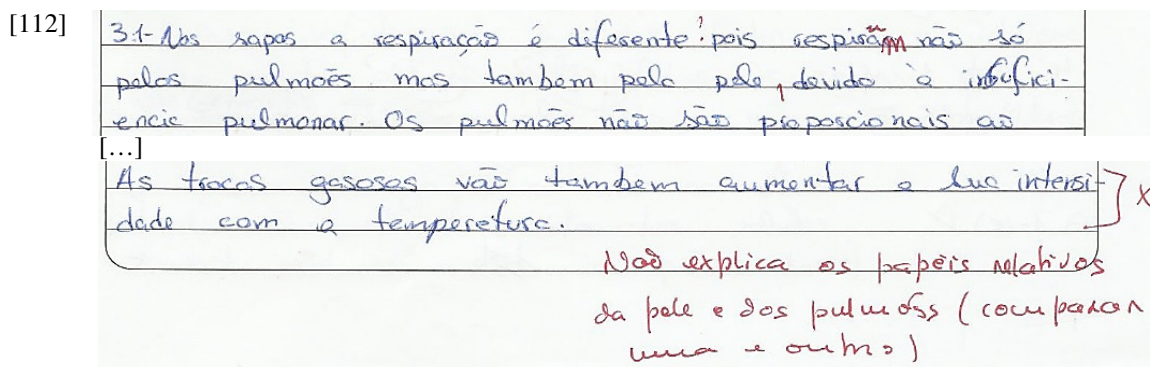 [112]
3.1- Nos sapos a respiração é diferente? pois respirãm não só
pelos pulmões mas tambem pela pele, devido à insufici-
encia pulmonar. Os pulmões não são proporcionais ao
[...]
As trocas gasosas vão tambem aumentar a sua intensi-
dade com a temperatura.
x
Não explica os papéis relativos
da pele e dos pulmões (comparar
uma e outro)